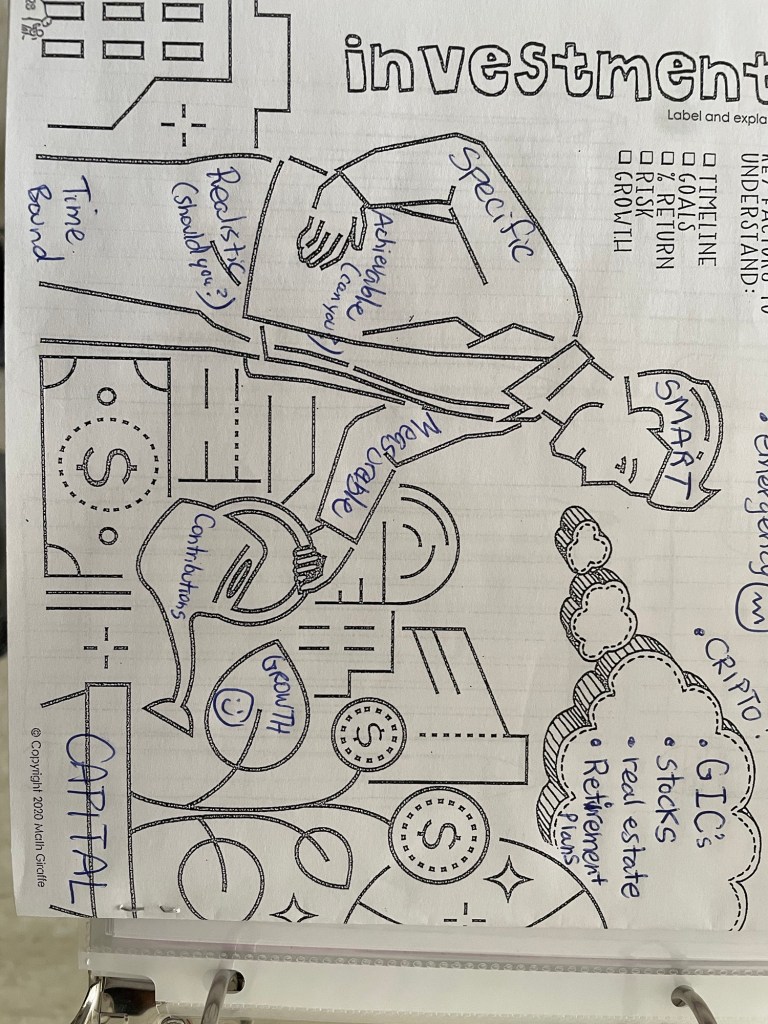 investment
Label and expla
KEY FACTORS TO
UNDERSTAND:
☐ TIMELINE
☐ GOALS
☐ % RETURN
☐ RISK
☐ GROWTH
• emergency
• CRIPTO
• GIC's
• stocks
• real estate
• Retirement
plans
SMART
Specific
Measurable
Achievable
(can you?)
Realistic
(should you?)
Time
Bound
Contributions
GROWTH
$
$
$
CAPITAL
© Copyright 2020 Math Giraffe